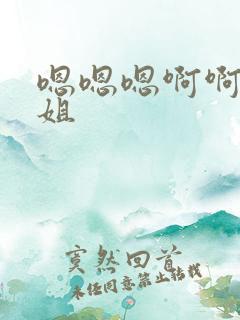 嗯嗯嗯啊啊
姐
寞然回首
未经同意禁止转载